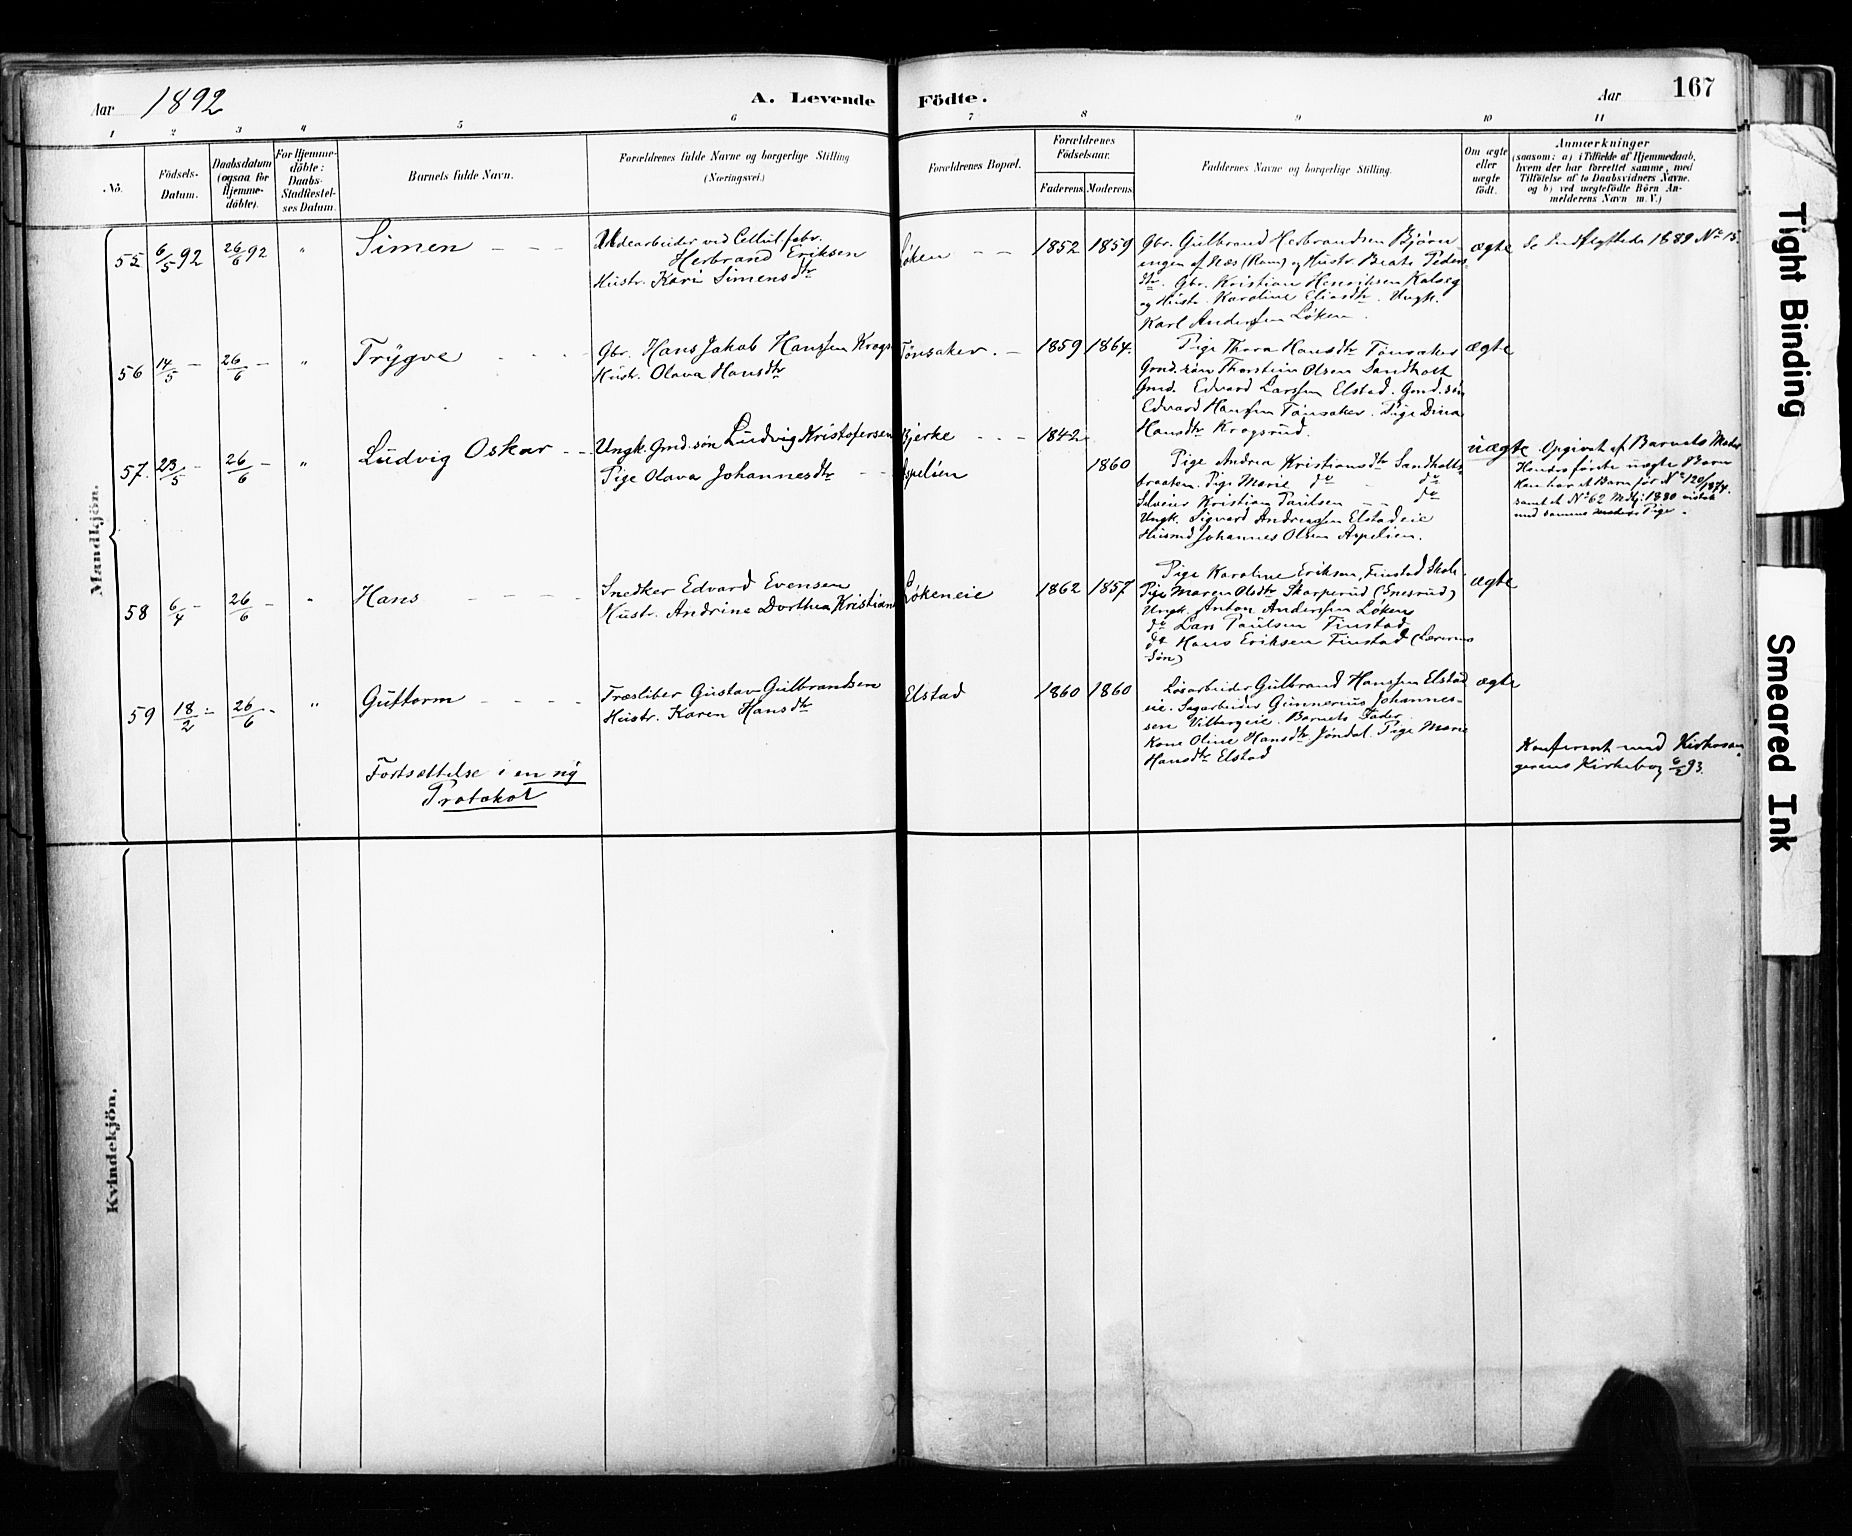 Aar 1892 A. Levende Födte. Aar 167
1 2 3 4 5 6 7 8 9 10 11
No.
Födsels-
Datum.
Daabsdatum
(ogsaa for
Hjemme-
döbte).
For Hjemme-
döbte:
Daabs-
Stadfæstel-
ses Datum.
Barnets fulde Navn.
Forældrenes fulde Navne og borgerlige Stilling
(Næringsvei.)
Forældrenes Bopæl.
Forældrenes
Födselsaar.
Faderens Moderens
Faddernes Navne og borgerlige Stilling.
Om ægte
eller
uægte
födt.
Anmærkninger
(saasom: a) i Tilfælde af Hjemmedaab,
hvem der har forrettet samme, med
Tilföielse af to Daabsvidners Navne,
og b) ved uægtefödte Börn An-
melderens Navn m. V.)
Mandkjön.
55 6/5 92 26/6 92 " Simen
Udearbeider ved Cellul. fabr.
Herbrand Eriksen
Hustr. Kari Simensdtr
Løken 1852 1859
Gbr. Gulbrand Herbrandsen Bjørn-
ingen af Næs (Rom) og Hustr. Beate Peders-
dtr. Gbr. Kristian Henriksen Kalseg
og Hustr. Karoline Eliasdtr. Ungk.
Karl Anderssen Løken.
ægte
Indflyttede 1889 No 15.
56 14/5 - 26/6 - " Trygve
Gbr. Hans Jakob Hanssen Krogs
Hustr. Olava Hansdtr
Tønsaker. 1859 1864.
Pige Thora Hansdtr Tønsaker
Gmd. søn Thorstein Olsen Sandholt
Gmd. Edvard Larssen Elstad. Gmd. søn
Edvard Hanssen Tønsaker. Pige Dina
Hansdtr Krogsrud.
ægte
57. 23/5 - 26/6 - " Ludvig Oskar
Ungk. Gmd. søn Ludvig Kristofersen
Pige Olava Johannesdtr
Bjerke 1842
Aspelien 1860
Pige Andrea Kristiansdtr Sandholt-
braaten. Pige Marie do do
Kristian Paulsen do
Ungk. Sigvard Andreassen Elstadeie
Husmd Johannes Olsen Aspelien.
uægte
Opgivet af Barnets Moder
Hendes første uægte Barn
Han har et Barn før No 120/1874.
samt et No 62 Mdkj. 1880
med samme Pige.
58 6/4 - 26/6 - " Hans
Snedker Edvard Evensen
Hustr. Andrine Dorthea Kristian
Løkeneie 1862 1857
Pige Karoline Eriksen, Finstad Skole
Pige Maren Olsdtr Skarperud (Enesrud)
Ungk. Anton Anderssen Løken
do Lars Paulsen Finstad
do Hans Eriksen Finstad
Søn)
ægte
59 18/2 - 26/6 - " Guttorm
Træsliber Gustav Gulbrandsen
Hustr. Karen Hansdtr
Elstad 1860 1860
Løsarbeider Gulbrand Hanssen Elstad
eie. Sagarbeider Gunnerius Johannes-
sen Vilbergeie. Barnets Fader.
Kone Oline Hansdtr Jøndal. Pige Marie
Hansdtr Elstad
ægte
Fortsættelse i en ny
Protokol
Konfereret med Kirkesan-
gerens Kirkebog 93.
Kvindekjön.
Tight Binding
Smeared Ink